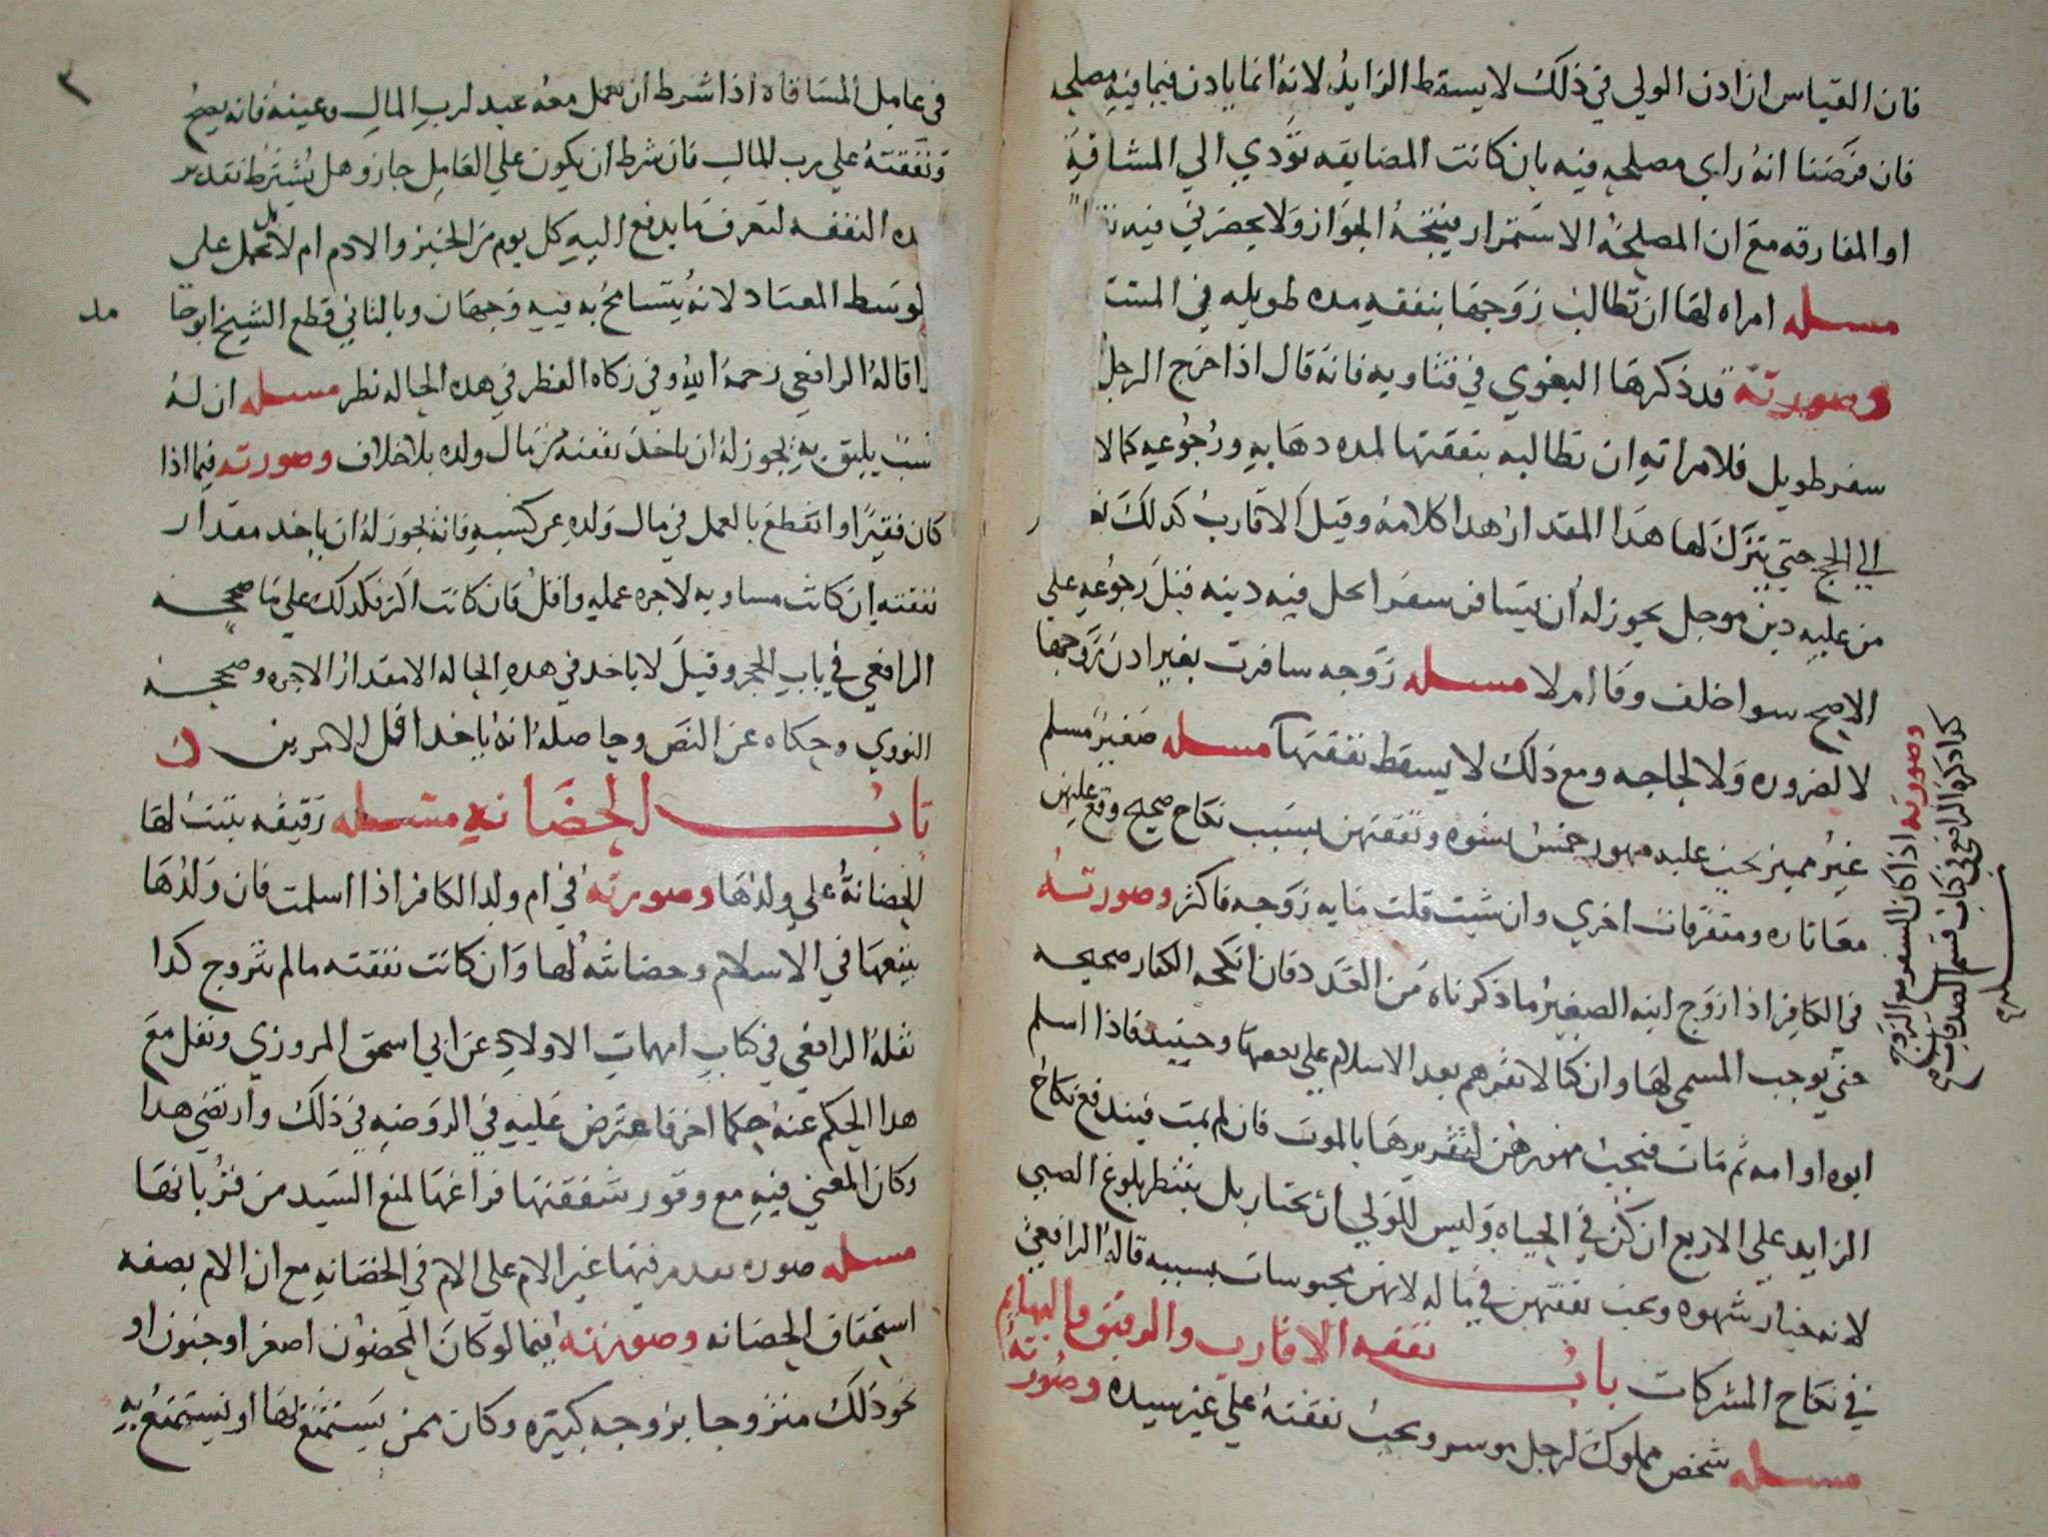 فان القياس ان اذن الولي في ذلك لا يسقط الزايد لانه انما ياذن فيما فيه مصلحه
فان فرضنا انه راي مصلحه فيه بان كانت المضايقه تؤدي الي المشاقة
او المفارقه مع ان المصلحة الاستمرار فيتجه الجواز ولا يحضرني فيه
مسله امراه لها ان تطالب زوجها بنفقه مده طويله في المستقـ
وصورته قد ذكرها البغوي في فتاويه فانه قال اذا خرج الرجل
سفر طويل فلامراته ان تطالبه بنفقتها لمده ذهابه ورجوعه كما لا
الي الحج حتي يترك لها هذا المقدار هذا كلامه وقيل الاقارب كذلك
من عليه دين موجل يجوز له ان يسافر سفرا يحل فيه دينه قبل رجوعه علي
الاصح سوا خلف وفا ام لا مسله زوجه سافرت بغير اذن زوجها
لا لضروره ولا لحاجه ومع ذلك لا يسقط نفقتها مسله صغير مسلم
غير مميز يجب عليه مهور خمس نسوه ونفقتهن بسبب نكاح صحيح وقع عليهن
معا تاره ومتفرقات اخري وان شيت قلت مايه زوجه فاكثر وصورته
في الكافر اذا زوج ابنه الصغير ما ذكرناه من العدد فان انكحه الكفار صحيحه
حتي يوجب المسمي لها وان كنا لا نقرهم بعد الاسلام علي بعضها وحينيد فاذا اسلم
ابوه او امه ثم مات فيجب مهورهن لتقريرها بالموت فان لم يمت فيندفع نكاح
الزايد علي الاربع ان كن في الحياه وليس للولي ان يختار بل ينتظر بلوغ الصبي
لانه خيار شهوه ويجب نفقتهن في ماله لانهن محبوسات بسببه قاله الرافعي
في نكاح المشركات باب نفقه الاقارب والرقيق والبهايم
مسله شخص مملوك لرجل موسر ويجب نفقته علي غير سيده وصورته
وصورته اذا كان السفر مع الزوج
كذا ذكره الرافعي في كتاب قسم الصدقات
في عامل المساقاه اذا شرط ان يعمل معه عبد لرب المال وعينه فانه يصح
ونفقته علي رب المال فان شرط ان يكون علي العامل جاز وهل يشترط تقدير
ده النفقه لتعرف ما يدفع اليه كل يوم من الخبز والادم ام لا بل تحمل على
لوسط المعتاد لانه يتسامح به فيه وجهان وبالثاني قطع الشيخ ابو حا
مد
ا قاله الرافعي رحمه الله وفي زكاه الفطر في هذه الحاله نظر مسله ان له
سب يليق به يجوز له ان ياخذ نفقته من مال ولده بلا خلاف وصورته فيما اذا
كان فقيرا وانقطع بالعمل في مال ولده عن كسبه فانه يجوز له ان ياخذ مقدار
نفقته ان كانت مساويه لاجره عمله واقل فان كانت اكثر فكذلك علي ما صححه
الرافعي في باب الحجر وقيل لا ياخذ في هذه الحاله الا مقدار الاجره وصححه
النووي وحكاه عن النص وحاصله انه ياخذ اقل الامرين
باب الحضانه مسله رقيقه يثبت لها
الحضانة علي ولدها وصورته في ام ولد الكافر اذا اسلمت فان ولدها
يتبعها في الاسلام وحضانته لها وان كانت نفقته مالم تتزوج كذا
نقله الرافعي في كتاب امهات الاولاد عن ابي اسحق المروزي ونقل مع
هذا الحكم عنه حكما اخر فاعترض عليه في الروضه في ذلك وارتضي هذا
وكان المعني فيه مع وفور شفقتها فراغها لمنع السيد من قربانها
مسله صوره يقدم فيها غير الام علي الام في الحضانه مع ان الام بصفه
استحقاق الحضانه وصورته فيما لو كان المحضون اصغر او جنون او
نحو ذلك متزوجا بزوجه كبيره وكان ممن يستمتع لها او يستمتع به